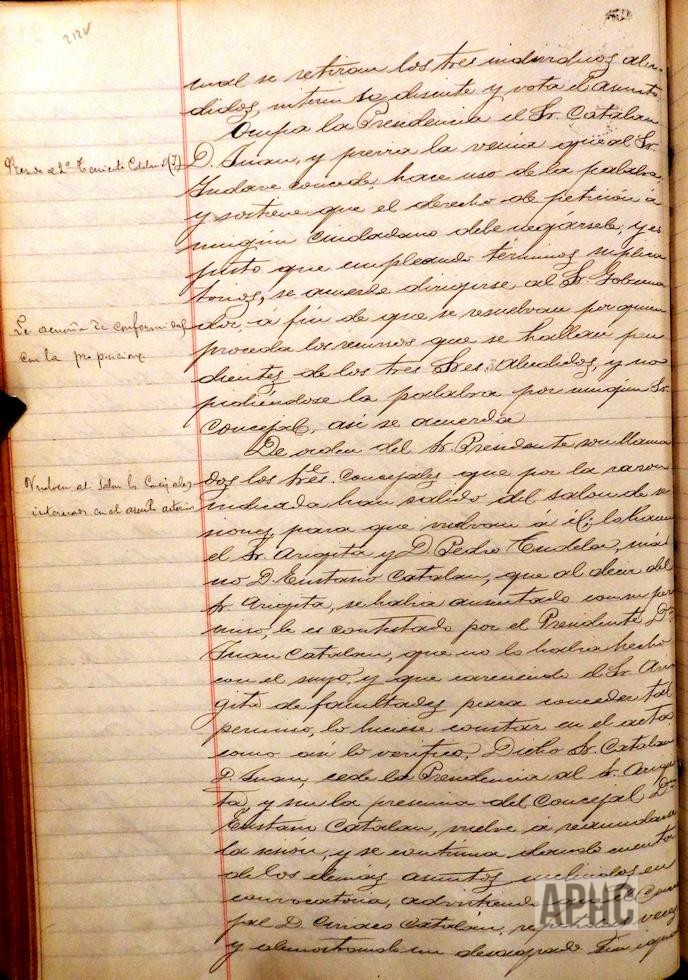 212V
cual se retiran los tres individuos alu-
didos, interin se discute y vota el asunto
Ocupa la Presidencia el Sr. Catalan
D. Juan, y previa la venia que al Sr.
concede, hace uso de la palabra
y sostiene que el derecho de petición á
ningún ciudadano debe negársele, y es
justo que empleando terminos suplica
torios, se acuerde dirigirse al Sr. Goberna
dor, á fin de que se resuelvan por quien
proceda los recursos que se hallan pen
dientes de los tres Sres. aludidos, y no
pidiéndose la palabra por ningún Sr.
Concejal, así se acuerda
De orden del Sr. Presidente son llama
dos los Sres. Concejales que por la razon
indicada han salido del salon de se
siones para que vuelvan á él; lo hacen
el Sr. Angita y D. Pedro Tudela, más
no D. Eustasio Catalan, que al decir del
Sr. Angita, se habia ausentado con su per
miso, le es contestado por el Presidente Dn.
Juan Catalan, que no lo habia hecho
con el suyo, y que careciendo el Sr. An
gita de facultades para conceder tal
permiso, lo hiciese constar en el acta
como así lo verifico. Dicho Sr. Catalan
D. Juan, cede la Presidencia al Sr. Angi
ta, y sin la presencia del Concejal Dn.
Eustasio Catalan, vuelve á reanudarse
la sesion, y se continua dando cuenta
de los demas asuntos incluidos en
convocatoria, advirtiendo que el Conce
jal D. Ciriaco Catalán, repetidas veces
y demostrando un desagrado sin igual
Preside el 2º Teniente Catalan D. (J)
Se acuerda de conformidad
con la proposicion
Vuelven al Salon los Concejales
interesados en el asunto anterior
APHC